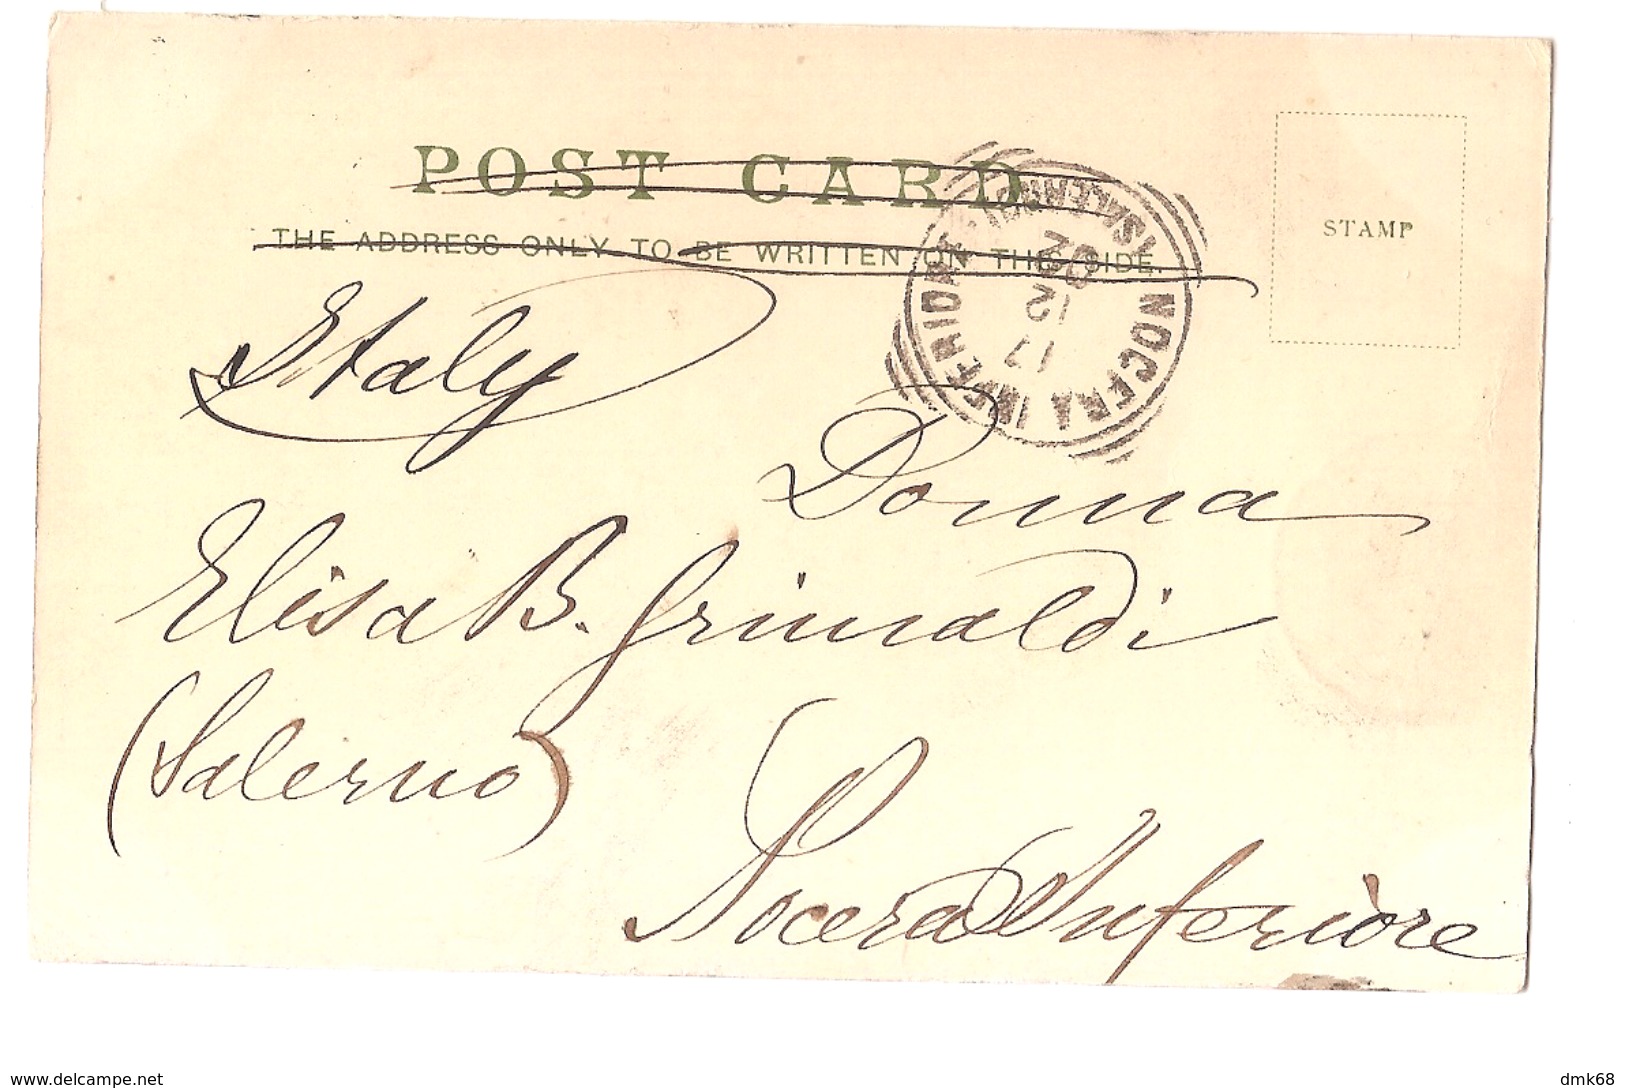 POST CARD
THE ADDRESS ONLY TO BE WRITTEN ON THIS SIDE.
STAMP
NOCERA INFERIORE (SALERNO)
17
12
02
Italy
Donna
Elisa B. Grimaldi
(Salerno)
Nocera Inferiore
www.delcampe.net
dmk68